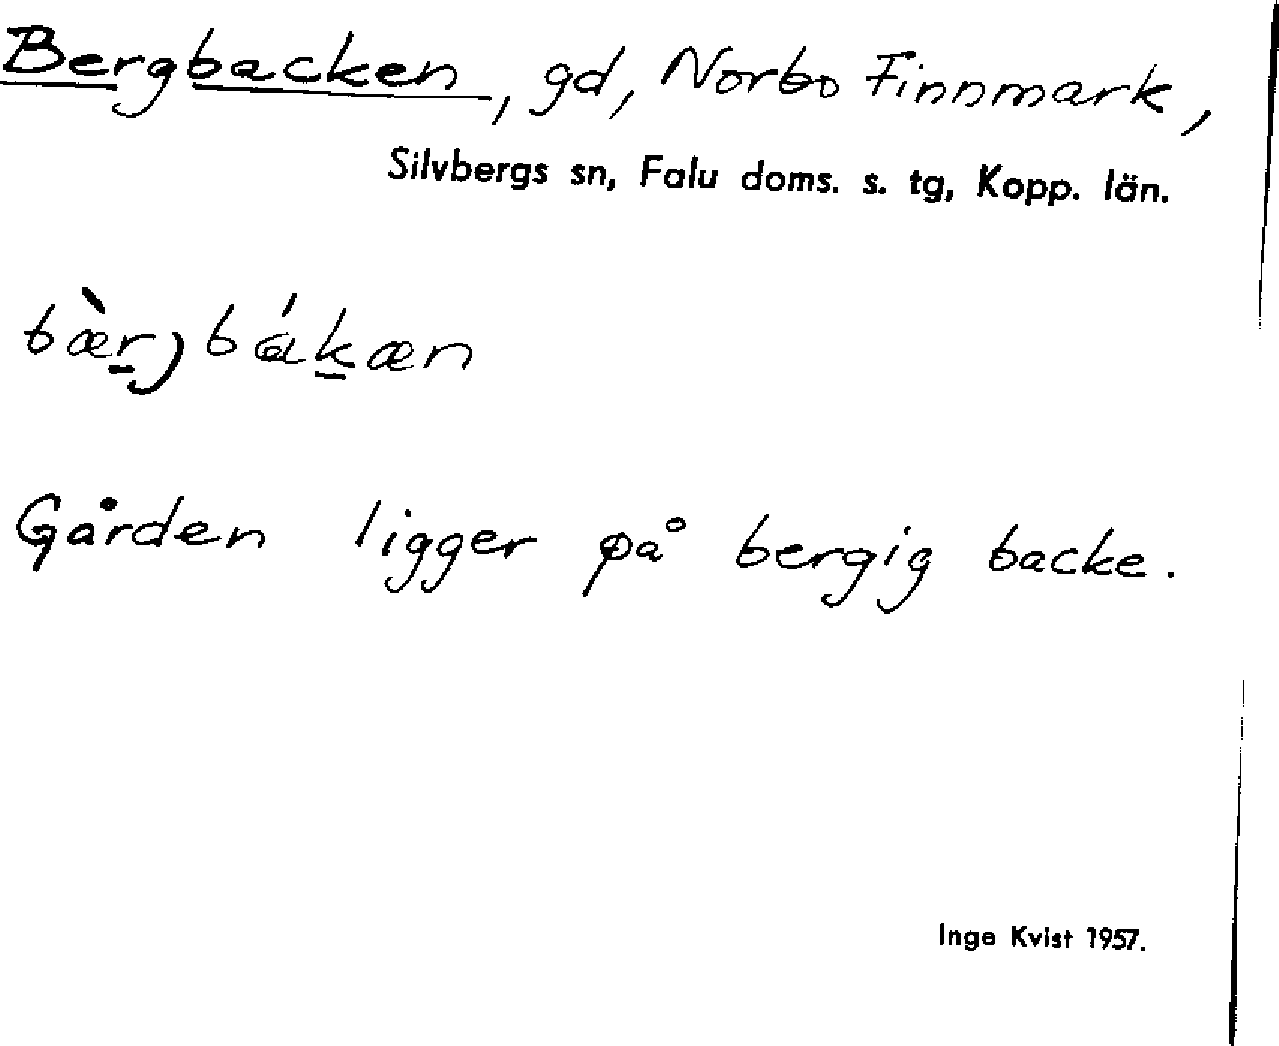 Bergbacken, gd, Norbo Finnmark,
Silvbergs sn, Falu doms. s. tg, Kopp. län.
bæ̀r̲jbák̲æn
Gården ligger på bergig backe.
Inge Kvist 1957.